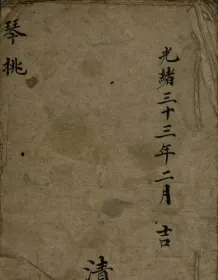 光緒三十三年二月吉
清
琴挑